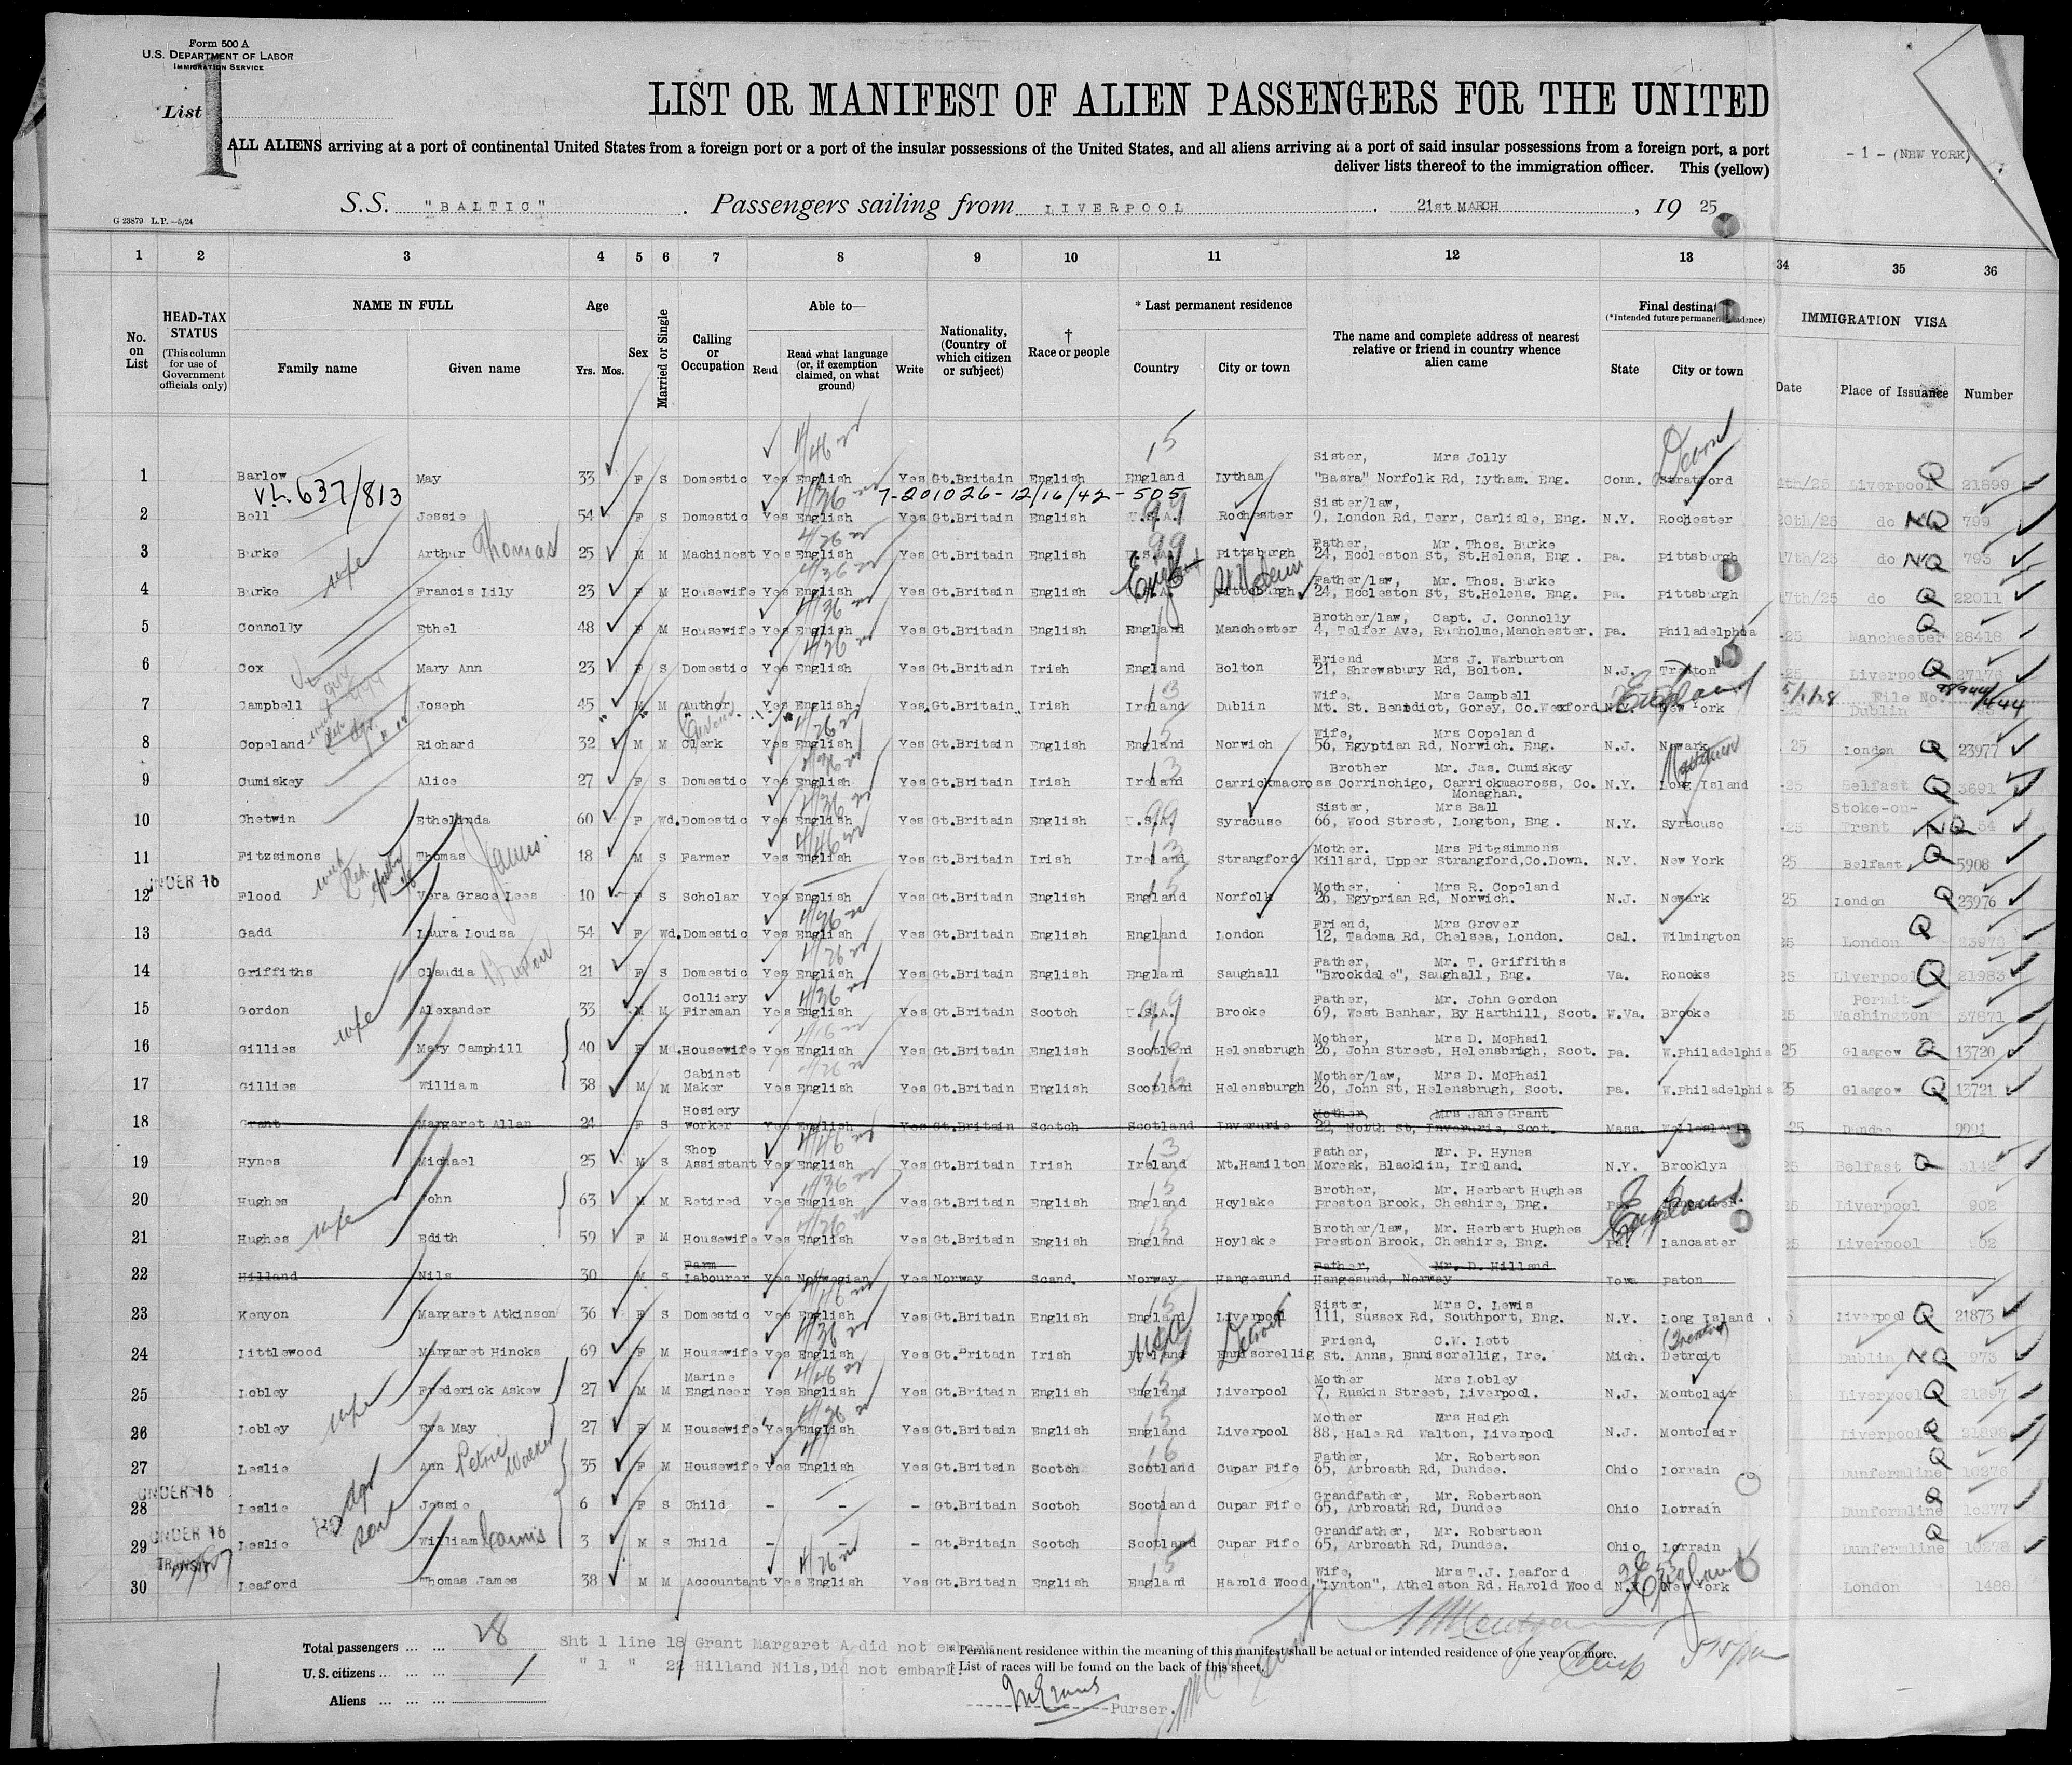 Form 500 A
U.S. DEPARTMENT OF LABOR
IMMIGRATION SERVICE
List 1
LIST OR MANIFEST OF ALIEN PASSENGERS FOR THE UNITED
ALL ALIENS arriving at a port of continental United States from a foreign port or a port of the insular possessions of the United States, and all aliens arriving at a port of said insular possessions from a foreign port, a port
deliver lists thereof to the immigration officer. This (yellow)
- 1 - (NEW YORK)
S.S. "BALTIC" . Passengers sailing from LIVERPOOL . 21st MARCH , 19 25
G 23879 L.P.—5/24
1 2 3 4 5 6 7 8 9 10 11 12 13 34 35 36
No. on List
HEAD-TAX STATUS (This column for use of Government officials only)
NAME IN FULL
Family name Given name
Age
Yrs. Mos.
Sex
Married or Single
Calling or Occupation
Able to—
Read Read what language (or, if exemption claimed, on what ground) Write
Nationality, (Country of which citizen or subject)
† Race or people
* Last permanent residence
Country City or town
The name and complete address of nearest relative or friend in country whence alien came
Final destinat
(*Intended future permanen
State City or town
IMMIGRATION VISA
Date Place of Issuance Number
Sister, Mrs Jolly
1 Barlow May 33 F S Domestic Yes English Yes Gt.Britain English England Lytham "Basra" Norfolk Rd, Lytham. Eng. Conn. Stratford 4th/25 Liverpool Q 21899
VL 637/813 7-201026-12/16/42-505
Sister/law,
2 Bell Jessie 54 F S Domestic Yes English Yes Gt.Britain English U.S.A. Rochester 9, London Rd, Terr, Carlisle, Eng. N.Y. Rochester 20th/25 do NQ 799
Father, Mr. Thos. Burke
3 Burke Arthur Thomas 25 M M Machinest Yes English Yes Gt.Britain English U.S.A. Pittsburgh 24, Eccleston St, St.Helens, Eng. Pa. Pittsburgh 17th/25 do NQ 793
Father/law, Mr. Thos. Burke
4 Burke wife Francis Lily 23 F M Housewife Yes English Yes Gt.Britain English Pittsburgh 24, Eccleston St, St.Helens. Eng. Pa. Pittsburgh 17th/25 do Q 22011
Brother/law, Capt. J. Connolly
5 Connolly Ethel 48 F M Housewife Yes English Yes Gt.Britain English England Manchester 4, Telfer Ave, Rusholme,Manchester. Pa. Philadelphia -25 Manchester Q 28418
Friend Mrs J. Warburton
6 Cox Mary Ann 23 F S Domestic Yes English Yes Gt.Britain Irish England Bolton 21, Shrewsbury Rd, Bolton. N.J. Trenton -25 Liverpool Q 27176
Wife, Mrs Campbell
7 Campbell Joseph 45 M M Author Yes English Yes Gt.Britain Ireland Dublin Mt. St. Benedict, Gorey, Co.Wexford N.Y. New York England 5/1/28 File No. Dublin
Wife, Mrs Copeland
8 Copeland Richard 32 M M Clerk Yes English Yes Gt.Britain English England Norwich 56, Egyptian Rd, Norwich. Eng. N.J. Newark 25 London Q 23977
Brother Mr. Jas. Cumiskey
9 Cumiskey Alice 27 F S Domestic Yes English Yes Gt.Britain Irish Ireland Carrickmacross Corrinchigo, Carrickmacross, Co. N.Y. Long Island -25 Belfast Q 3691
Monaghan.
Sister, Mrs Ball Stoke-on-
10 Chetwin Ethelinda 60 F Wd. Domestic Yes English Yes Gt.Britain English U.S.A. Syracuse 66, Wood Street, Longton, Eng. N.Y. Syracuse .25 Trent NQ 54
Mother. Mrs Fitzsimmons
11 Fitzsimons Thomas James 18 M S Farmer Yes English Yes Gt.Britain Irish Ireland Strangford Killard, Upper Strangford,Co.Down. N.Y. New York 25 Belfast Q 5908
UNDER 16 Mother, Mrs R. Copeland
12 Flood Vera Grace Lees 10 F S Scholar Yes English Yes Gt.Britain English England Norfolk 26, Egyprian Rd, Norwich. N.J. Newark 25 London Q 23976
Friend, Mrs Grover
13 Gadd Laura Louisa 54 F Wd. Domestic Yes English Yes Gt.Britain English England London 12, Tadema Rd, Chelsea, London. Cal. Wilmington 25 London Q 23978
Father, Mr. T. Griffiths
14 Griffiths Claudia 21 F S Domestic Yes English Yes Gt.Britain English England Saughall "Brookdale", Saughall, Eng. Va. Ronoks 25 Liverpool Q 21983
Colliery Father, Mr. John Gordon Permit
15 Gordon Alexander 33 M M Fireman Yes English Yes Gt.Britain Scotch U.S.A. Brooke 69, West Benhar, By Harthill, Scot. W.Va. Brooke 25 Washington 37871
Mother, Mrs D. McPhail
16 Gillies wife Mary Camphill 40 F Md. Housewife Yes English Yes Gt.Britain English Scotland Helensbrugh 26, John Street, Helensbrugh, Scot. Pa. W.Philadelphia 25 Glasgow Q 13720
Cabinet Mother/law, Mrs D. McPhail
17 Gillies William 38 M M Maker Yes English Yes Gt.Britain English Scotland Helensburgh 26, John St, Helensbrugh, Scot. Pa. W.Philadelphia 25 Glasgow Q 13721
Hosiery Mother Mrs Jane Grant
18 Grant Margaret Allan 24 F S Worker Yes English Yes Gt.Britain Scotch Scotland Inverurie 22, North St, Inverurie, Scot. Mass. 25 Dundee 9991
Shop Father, Mr. P. Hynes
19 Hynes Michael 25 M S Assistant Yes English Yes Gt.Britain Irish Ireland Mt.Hamilton Moresk, Blacklin, Ireland. N.Y. Brooklyn 25 Belfast Q 3142
Brother, Mr. Herbert Hughes
20 Hughes John 63 M M Retired Yes English Yes Gt.Britain English England Hoylake Preston Brook, Cheshire, Eng. Pa. Lancaster 25 Liverpool 902
Brother/law, Mr. Herbert Hughes England
21 Hughes wife Edith 59 F M Housewife Yes English Yes Gt.Britain English England Hoylake Preston Brook, Cheshire, Eng. Pa. Lancaster 25 Liverpool 902
Farm Father, Mr. D. Hilland
22 Hilland Nils 30 M S Labourer Yes Norwegian Yes Norway Scand. Norway Hangesund Hangesund, Norway Iowa Paton
Sister, Mrs C. Lewis
23 Kenyon Margaret Atkinson 36 F S Domestic Yes English Yes Gt.Britain English England Liverpool 111, Sussex Rd, Southport, Eng. N.Y. Long Island Liverpool Q 21873
Friend, C.W. Lott
24 Littlewood Margaret Hincks 69 F M Housewife Yes English Yes Gt.Britain Irish Ireland USA Enniscrellig Detroit St. Anns, Enniscrellig, Ire. Mich. Detroit Dublin NQ 973
Marine Mother Mrs Lobley
25 Lobley Frederick Askew 27 M M Engineer Yes English Yes Gt.Britain English England Liverpool 7, Ruskin Street, Liverpool. N.J. Montclair Liverpool Q 21897
Mother Mrs Haigh
26 Lobley wife Eva May 27 F M Housewife Yes English Yes Gt.Britain English England Liverpool 88, Hale Rd Walton, Liverpool N.J. Montclair Liverpool Q 21898
Father, Mr. Robertson
27 Leslie Ann Petrie Walker 35 F M Housewife Yes English Yes Gt.Britain Scotch Scotland Cupar Fife 65, Arbroath Rd, Dundee. Ohio Lorrain Dunfermline Q 10276
UNDER 16 Grandfather, Mr. Robertson
28 Leslie dgt Jessie 6 F S Child - - - Gt.Britain Scotch Scotland Cupar Fife 65, Arbroath Rd, Dundee Ohio Lorrain Dunfermline Q 10277
UNDER 16 Grandfather, Mr. Robertson
29 Leslie son William 3 M S Child - - - Gt.Britain Scotch Scotland Cupar Fife 65, Arbroath Rd, Dundee. Ohio Lorrain Dunfermline Q 10278
TRANSIT Wife, Mrs T.J. Leaford
30 Leaford Thomas James 38 M M Accountant Yes English Yes Gt.Britain English England Harold Wood "Lynton", Athelston Rd, Harold Wood N.Y. New York England London 1488
Total passengers ... ... 28
U.S. citizens ... ... ...
Aliens ... ... ...
Sht 1 line 18 Grant Margaret A did not embark
" 1 " 22 Hilland Nils,Did not embark.
* Permanent residence within the meaning of this manifest shall be actual or intended residence of one year or more.
† List of races will be found on the back of this sheet.
Purser.